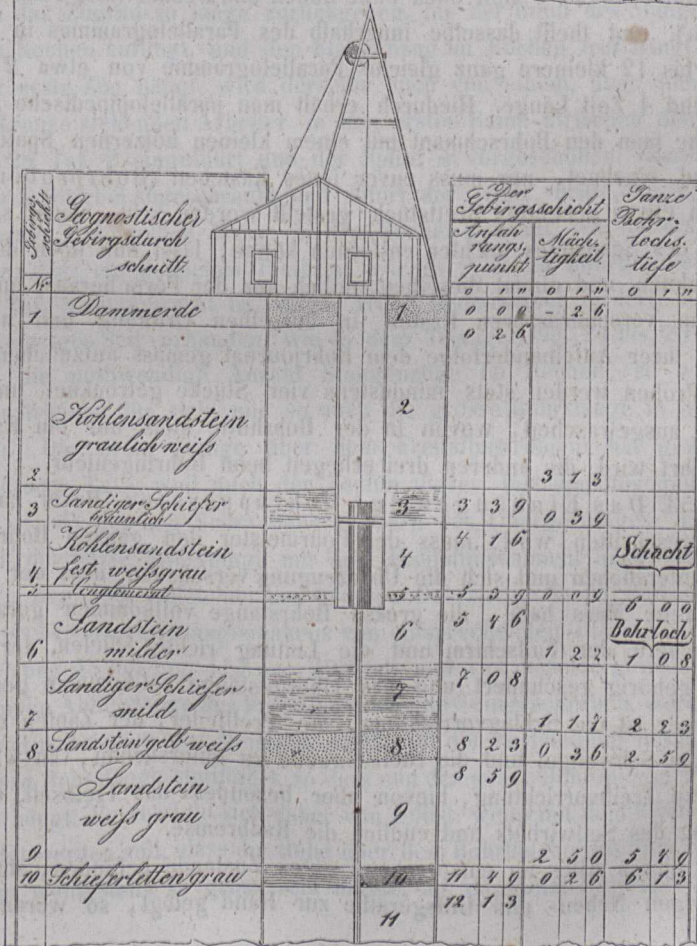 Gebirgs-
schicht
Nr.
Geognostischer
Gebirgsdurch
schnitt.
Der
Gebirgsschicht
Anfah
rungs,
punkt
Mäch-
tigkeit.
Ganze
Bohr-
lochs-
tiefe
0 ' " 0 ' " 0 ' "
1 Dammerde 1 0 0 0 - 2 6
0 2 6
Kohlensandstein 2
graulich weiss
2 3 1 3
3 Sandiger Schiefer 3 3 3 9
bräunlich 0 3 9
Kohlensandstein 4 1 6
4 fest weissgrau 4 Schacht
5 Conglomerat 5 5 3 9 0 0 9
6 0 0
Sandstein 6 5 4 6 Bohrloch
6 milder 1 2 2 1 0 8
Sandiger Schiefer 7 7 0 8
7 mild 1 1 7 2 2 3
8 Sandstein gelb weiss 8 8 2 3 0 3 6 2 5 9
Sandstein 8 5 9
weiss grau 9
9 2 5 0 5 7 9
10 Schieferletten grau 10 11 4 9 0 2 6 6 1 3
12 1 3
11